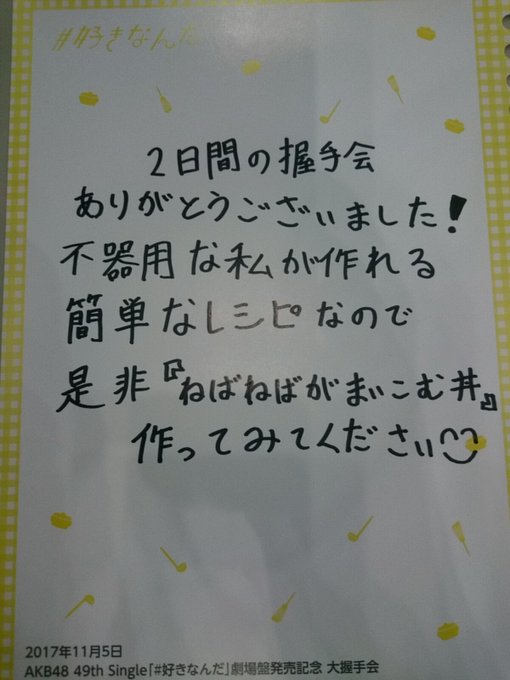 #好きなんだ
2日間の握手会
ありがとうございました!
不器用な私が作れる
簡単なレシピなので
是非『ねばねばがまいこむ丼』
作ってみてください^^
2017年11月5日
AKB48 49th Single「#好きなんだ」劇場盤発売記念 大握手会